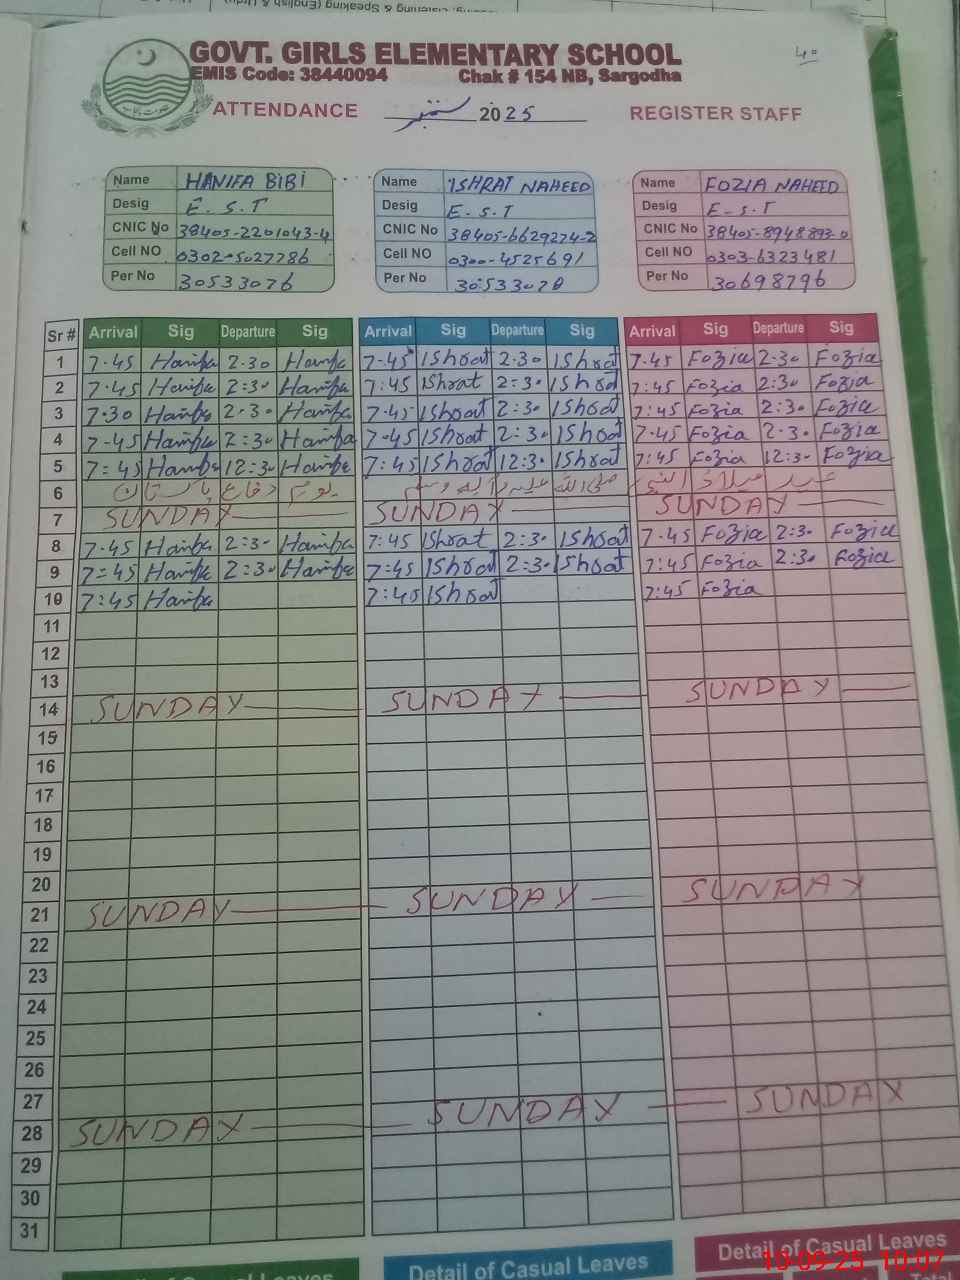 GOVT. GIRLS ELEMENTARY SCHOOL
EMIS Code: 38440094 Chak # 154 NB, Sargodha
40
ATTENDANCE ستمبر 2025 REGISTER STAFF
Name HANIFA BIBI Name ISHRAT NAHEED Name FOZIA NAHEED
Desig E.S.T Desig E.S.T Desig E-S.T
CNIC No 38405-2201043-4 CNIC No 38405-6629274-2 CNIC No 38405-8948893-0
Cell NO 0302-5027786 Cell NO 0300-4525691 Cell NO 0303-6323481
Per No 30533076 Per No 30533078 Per No 30698796
Sr # Arrival Sig Departure Sig Arrival Sig Departure Sig Arrival Sig Departure Sig
1 7.45 Hanifa 2.30 Hanifa 7.45 IShrat 2.30 IShrat 7.45 Fozia 2:30 Fozia
2 7.45 Hanifa 2:30 Hanifa 7:45 IShrat 2:30 IShrat 7:45 Fozia 2:30 Fozia
3 7.30 Hanifa 2.30 Hanifa 7.45 IShrat 2:30 IShrat 7:45 Fozia 2:30 Fozia
4 7.45 Hanifa 2:30 Hanifa 7.45 IShrat 2:30 IShrat 7.45 Fozia 2.30 Fozia
5 7:45 Hanifa 12:30 Hanifa 7:45 IShrat 12:30 IShrat 7:45 Fozia 12:30 Fozia
6 عید میلاد النبی صلی اللہ علیہ وآلہ وسلم یوم دفاع پاکستان
7 SUNDAY SUNDAY SUNDAY
8 7.45 Hanifa 2:30 Hanifa 7:45 IShrat 2:30 IShrat 7.45 Fozia 2:30 Fozia
9 7:45 Hanifa 2:30 Hanifa 7:45 IShrat 2:30 IShrat 7:45 Fozia 2:30 Fozia
10 7:45 Hanifa 7:45 IShrat 7:45 Fozia
11
12
13
14 SUNDAY SUNDAY SUNDAY
15
16
17
18
19
20
21 SUNDAY SUNDAY SUNDAY
22
23
24
25
26
27
28 SUNDAY SUNDAY SUNDAY
29
30
31
Detail of Casual Leaves Detail of Casual Leaves Detail of Casual Leaves
10-09-25 10:07
Total